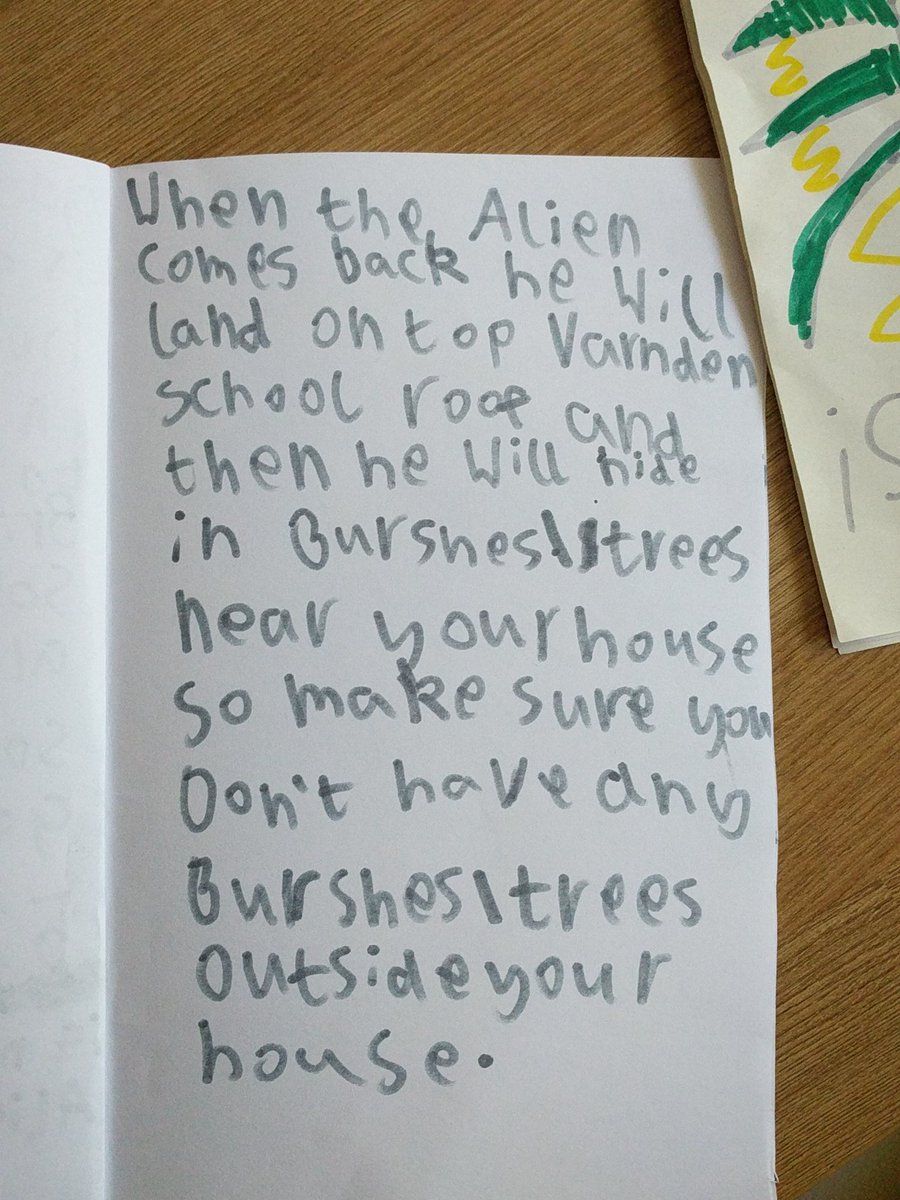 When the Alien
comes back he will
land on top Varnden
school roof and
then he will hide
in Burshes\trees
near your house
so make sure you
Don't have any
Burshes\trees
outside your
house.